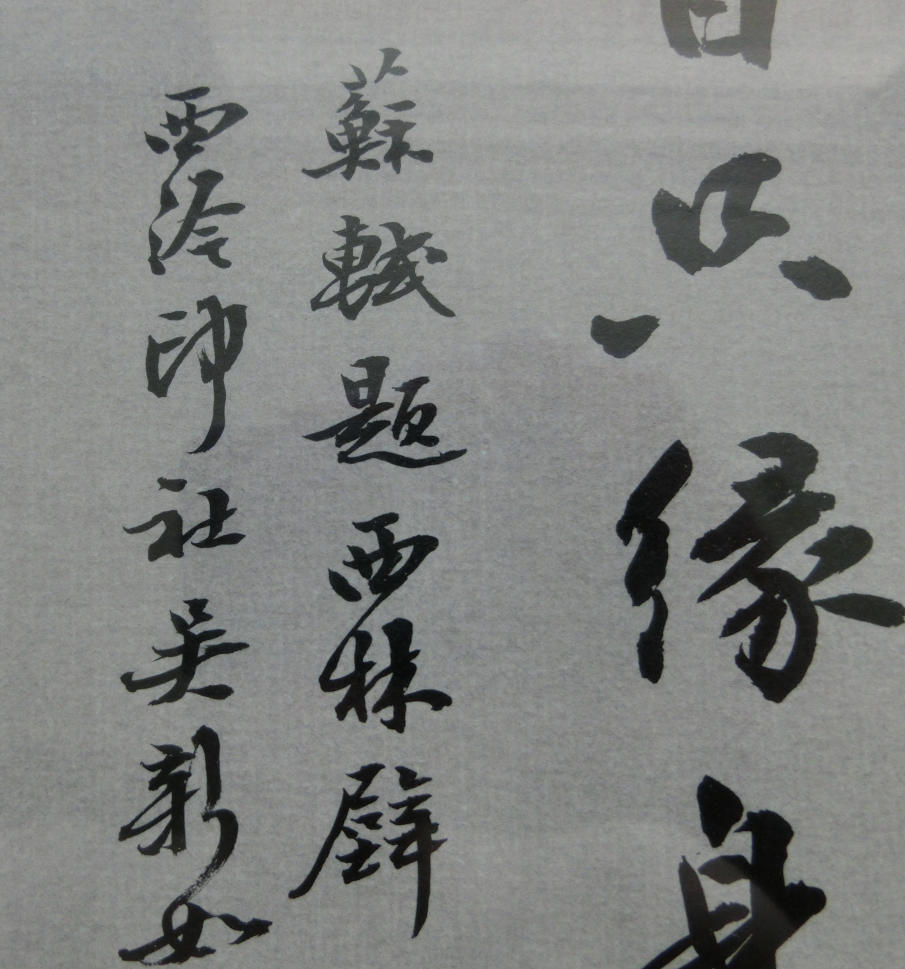 只緣身
蘇軾題西林壁
西泠印社吳新如